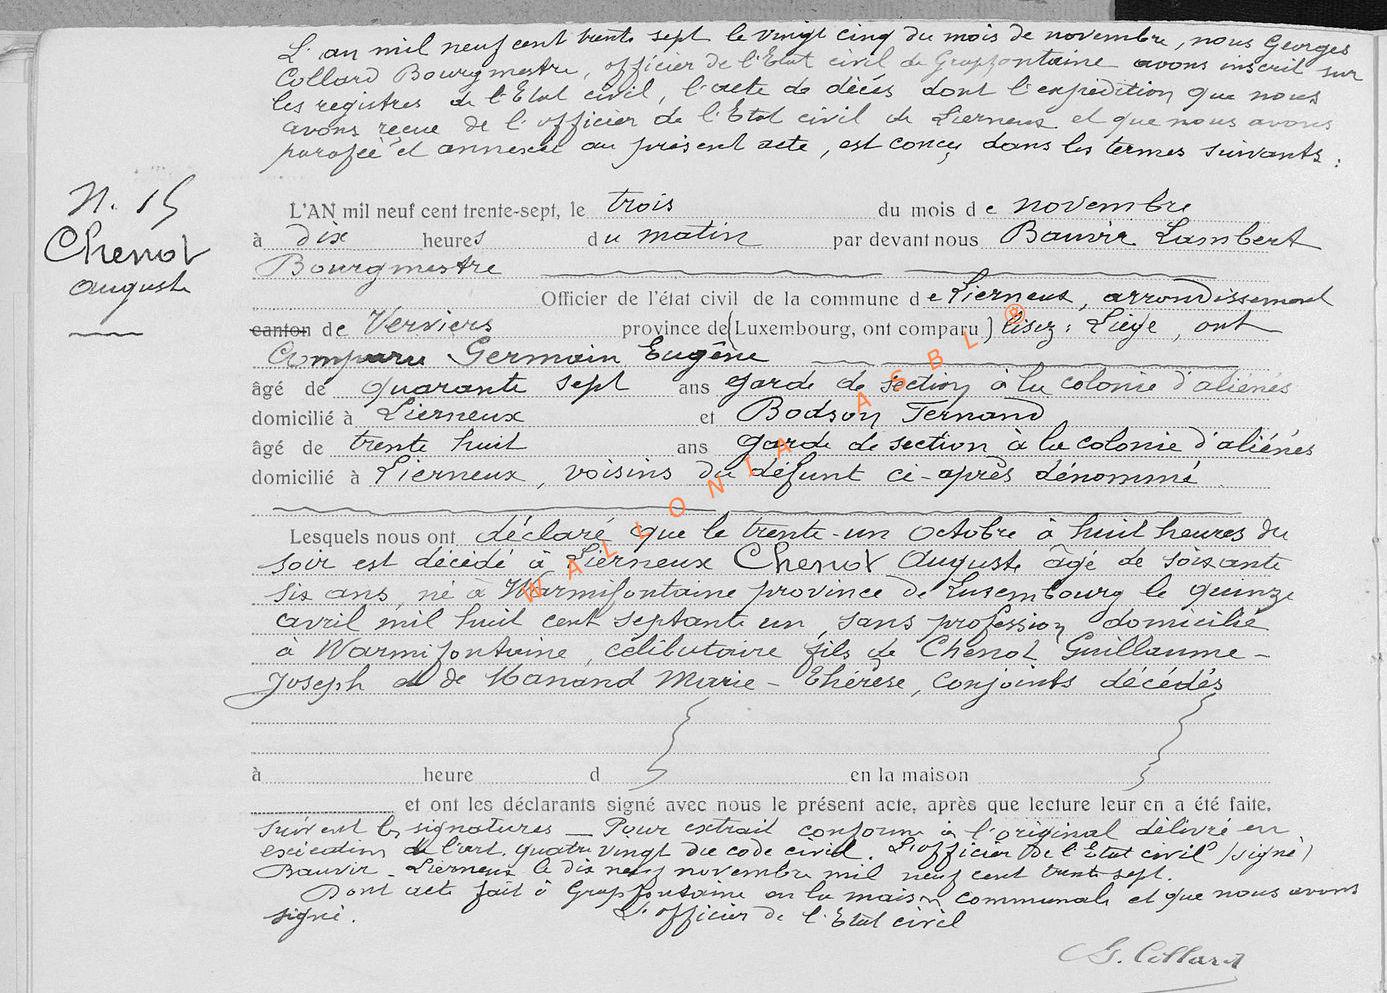 L'an mil neuf cent trente sept le vingt cinq du mois de novembre, nous Georges
Collard Bourgmestre, officier de l'Etat civil de Grapfontaine avons inscrit sur
les registres de l'Etat civil, l'acte de décès dont l'expédition que nous
avons reçue de l'officier de l'Etat civil de Lierneux et que nous avons
parafée et annexée au présent acte, est conçu dans les termes suivants :
N. 15
Chenot
Auguste
L'AN mil neuf cent trente-sept, le trois du mois de novembre
à dix heures du matin par devant nous Bauvir Lambert
Bourgmestre
Officier de l'état civil de la commune de Lierneux, arrondissement
canton de Verviers province de (Luxembourg, ont comparu) lisez : Liège, ont
Comparu Germain Eugène
âgé de quarante sept ans garde de section à la colonie d'aliénés
domicilié à Lierneux et Bodson Fernand
âgé de trente huit ans garde de section à la colonie d'aliénés
domicilié à Lierneux, voisins du défunt ci-après dénommé
Lesquels nous ont déclaré que le trente-un octobre à huit heures du
soir est décédé à Lierneux Chenot Auguste âgé de soixante
six ans, né à Warmifontaine province de Luxembourg le quinze
avril mil huit cent septante un, sans profession domicilié
à Warmifontaine, célibataire fils de Chenot Guillaume-
Joseph et de Manand Marie-Thérèse, conjoints décédés
à heure d en la maison
et ont les déclarants signé avec nous le présent acte, après que lecture leur en a été faite.
suivent les signatures _ Pour extrait conforme à l'original délivré en
exécution de l'art. quatre vingt du code civil. L'officier de l'Etat civil (signé)
Bauvir _ Lierneux le dix neuf novembre mil neuf cent trente sept.
Dont acte fait à Grapfontaine en la maison communale et que nous avons
signé. L'officier de l'Etat civil
G. Collard
WALLONIA ASBL ®